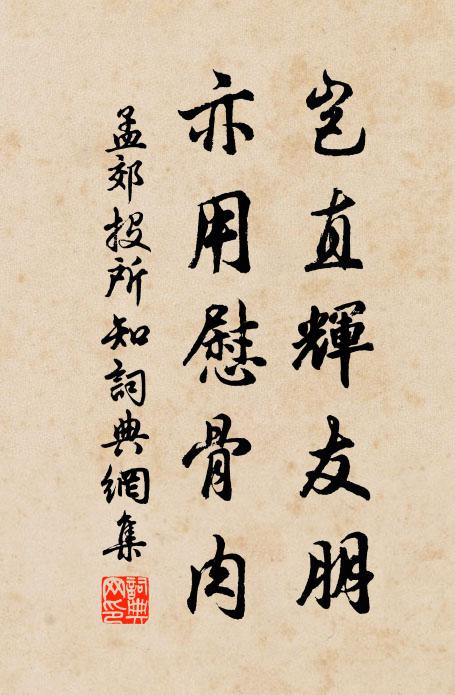 豈直輝友朋
亦用慰骨肉
孟郊投所知詞典網集
詞典網印